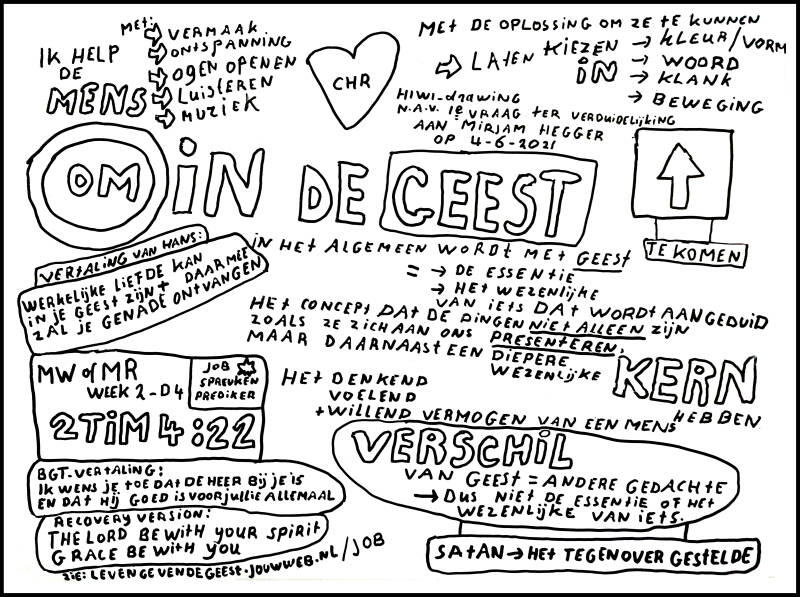 IK HELP
DE
MENS
MET:
→ VERMAAK
→ ONTSPANNING
→ OGEN OPENEN
→ LUISTEREN
→ MUZIEK
CHR
MET DE OPLOSSING OM ZE TE KUNNEN
⇨ LATEN KIEZEN IN
→ KLEUR/VORM
→ WOORD
→ KLANK
→ BEWEGING
HIWI-drawing
N.A.V. 1e VRAAG TER VERDUIDELIJKING
AAN MIRJAM HEGGER
OP 4-6-2021
OM IN DE GEEST
TE KOMEN
VERTALING VAN HANS:
WERKELIJKE LIEFDE KAN
IN JE GEEST ZIJN† DAARMEE
ZAL JE GENADE ONTVANGEN
IN HET ALGEMEEN WORDT MET GEEST
= → DE ESSENTIE
→ HET WEZENLIJKE
VAN IETS DAT WORDT AANGEDUID
HET CONCEPT DAT DE DINGEN NIET ALLEEN ZIJN
ZOALS ZE ZICH AAN ONS PRESENTEREN,
MAAR DAARNAAST EEN DIEPERE
WEZENLIJKE KERN
HEBBEN
MW of MR
WEEK 2-D4
JOB
SPREUKEN
PREDIKER
2TIM 4:22
HET DENKEND
VOELEND
+ WILLEND VERMOGEN VAN EEN MENS
BGT-VERTALING:
IK WENS JE TOE DAT DE HEER BIJ JE IS
EN DAT HIJ GOED IS VOOR JULLIE ALLEMAAL
RECOVERY VERSION:
THE LORD BE WITH YOUR SPIRIT
GRACE BE WITH YOU
ZIE: LEVENGEVENDEGEEST.JOUWWEB.NL/JOB
VERSCHIL
VAN GEEST = ANDERE GEDACHTE
→ DUS NIET DE ESSENTIE OF HET
WEZENLIJKE VAN IETS.
SATAN → HET TEGENOVER GESTELDE